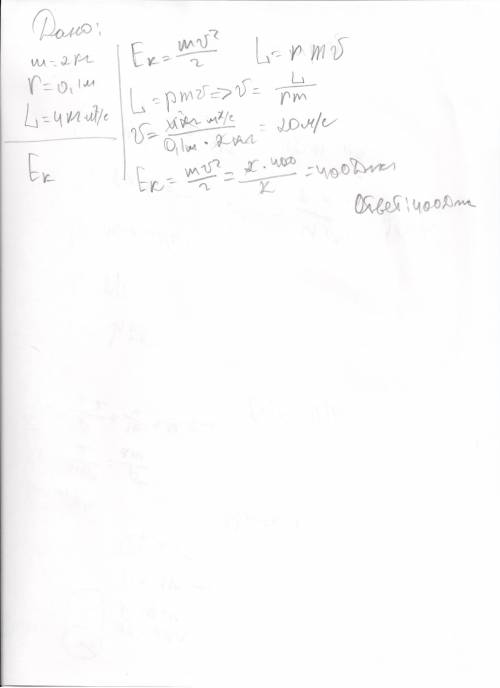 Дано:
m=2кг
r=0,1м
L=4кг м²/с
Eк
Eк=mv²/2 L=rmv
L=rmv=>v=L/rm
v=4кг м²/с / 0,1м·2кг=20м/с
Eк=mv²/2=2·400/2=400Дж
Ответ:400Дж